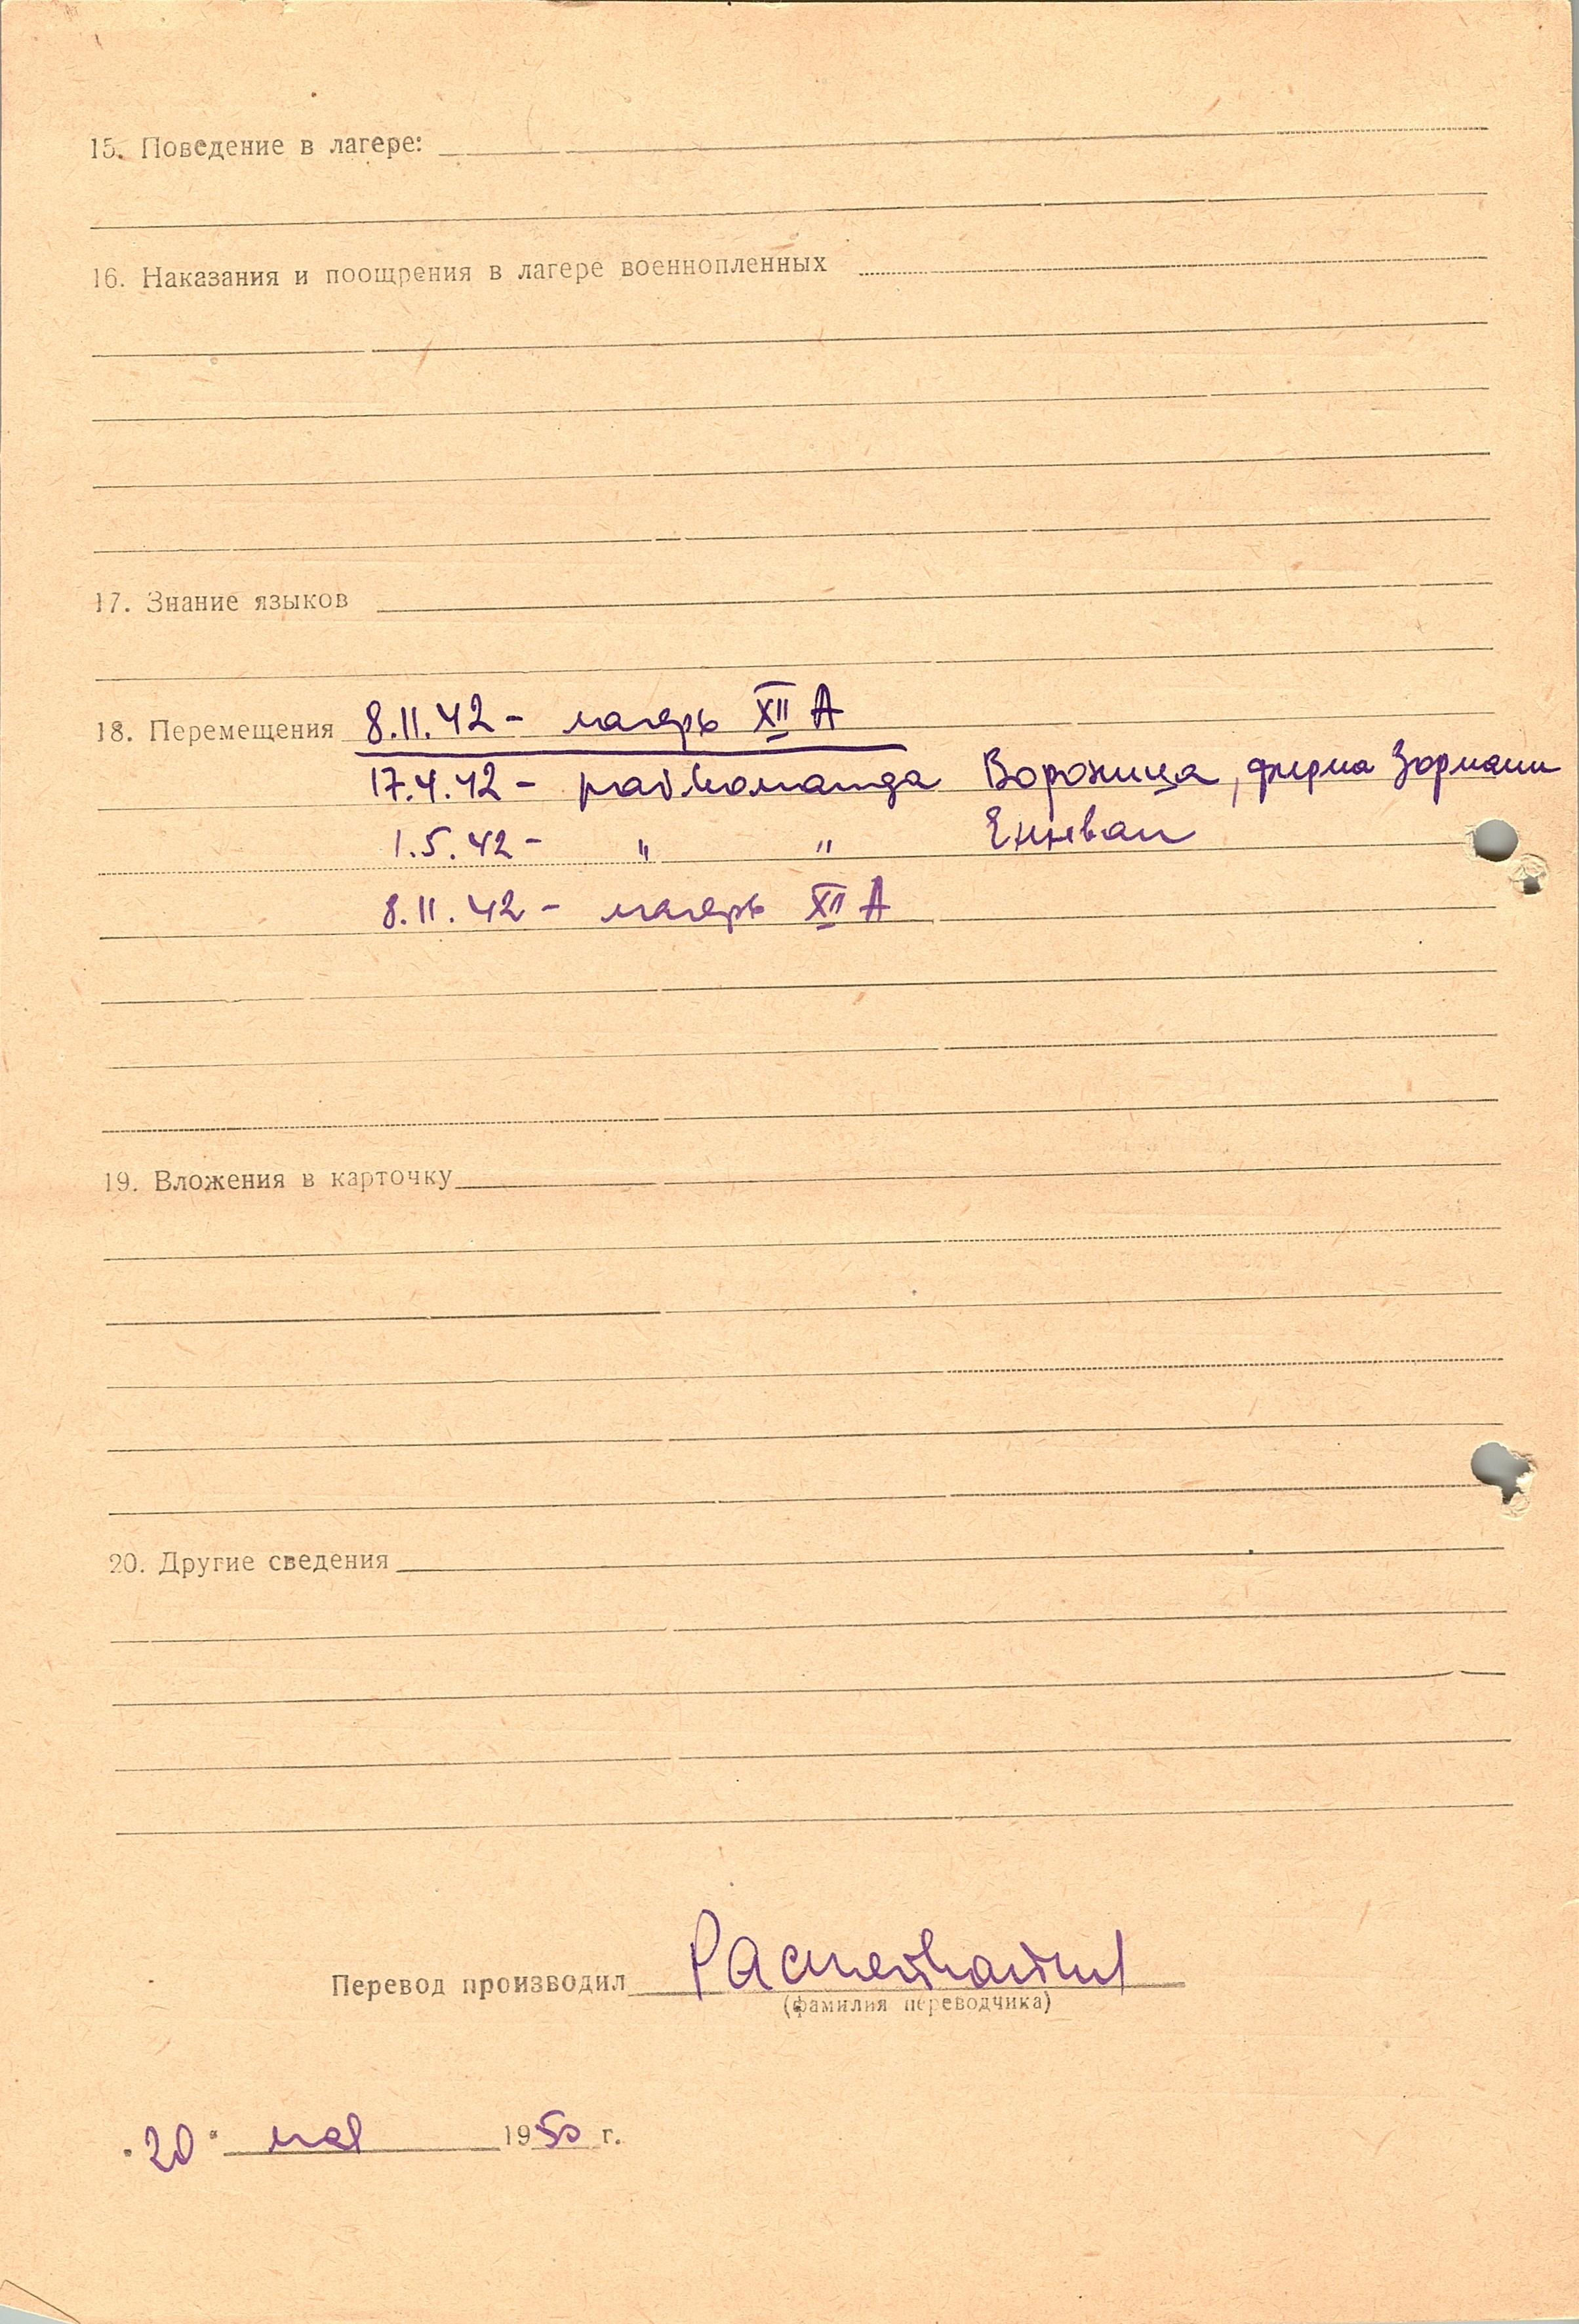 15. Поведение в лагере:
16. Наказания и поощрения в лагере военнопленных
17. Знание языков
18. Перемещения 8.11.42 - лагерь XII А
17.4.42 - рабкоманда Ворожица, фирма Зорманн
1.5.42 - " " Еннвал
8.11.42 - лагерь XII А
19. Вложения в карточку
20. Другие сведения
Перевод производил
(фамилия переводчика)
"20" мая 1950 г.